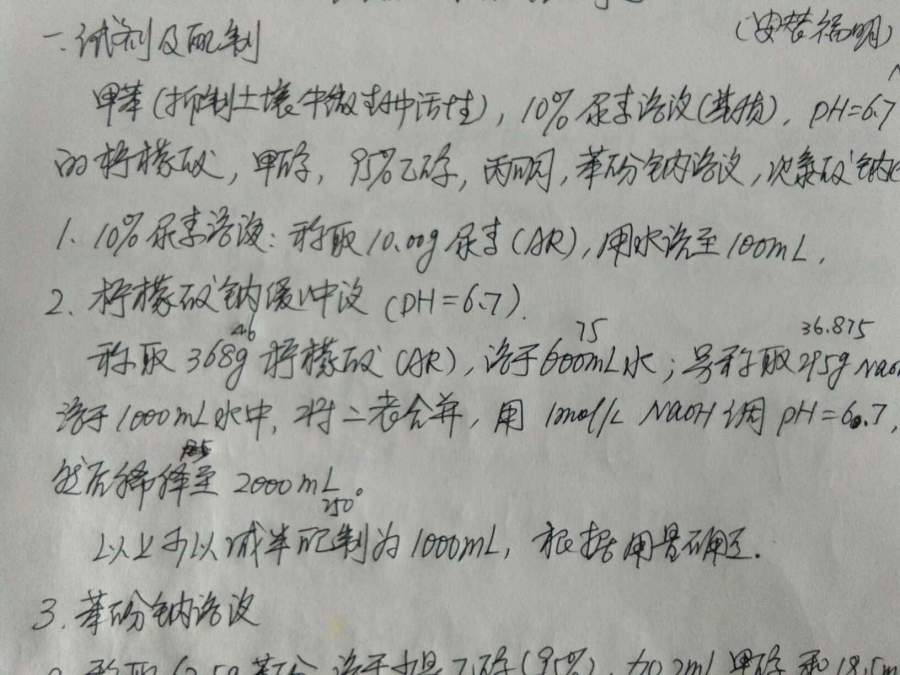 一.试剂及配制
(安替福明)
甲苯(抑制土壤中微生物活性), 10%尿素溶液(基质), pH=6.7
的柠檬酸, 甲醇, 95%乙醇, 丙酮, 苯酚钠溶液, 次氯酸钠
1. 10%尿素溶液: 称取10.00g尿素(AR), 用水溶至100mL.
2. 柠檬酸钠缓冲液 (pH=6.7).
46 75 36.875
称取368g柠檬酸(AR), 溶于600mL水; 另称取295g NaOH
溶于1000mL水中, 将二者合并, 用 1mol/L NaOH调pH=6.7,
然后稀释至 2000mL。
250
以上可以减半配制为1000mL, 根据用量确定.
3. 苯酚钠溶液
称取62.5g苯酚溶于少量乙醇(95%), 加2mL甲醇和18.5m